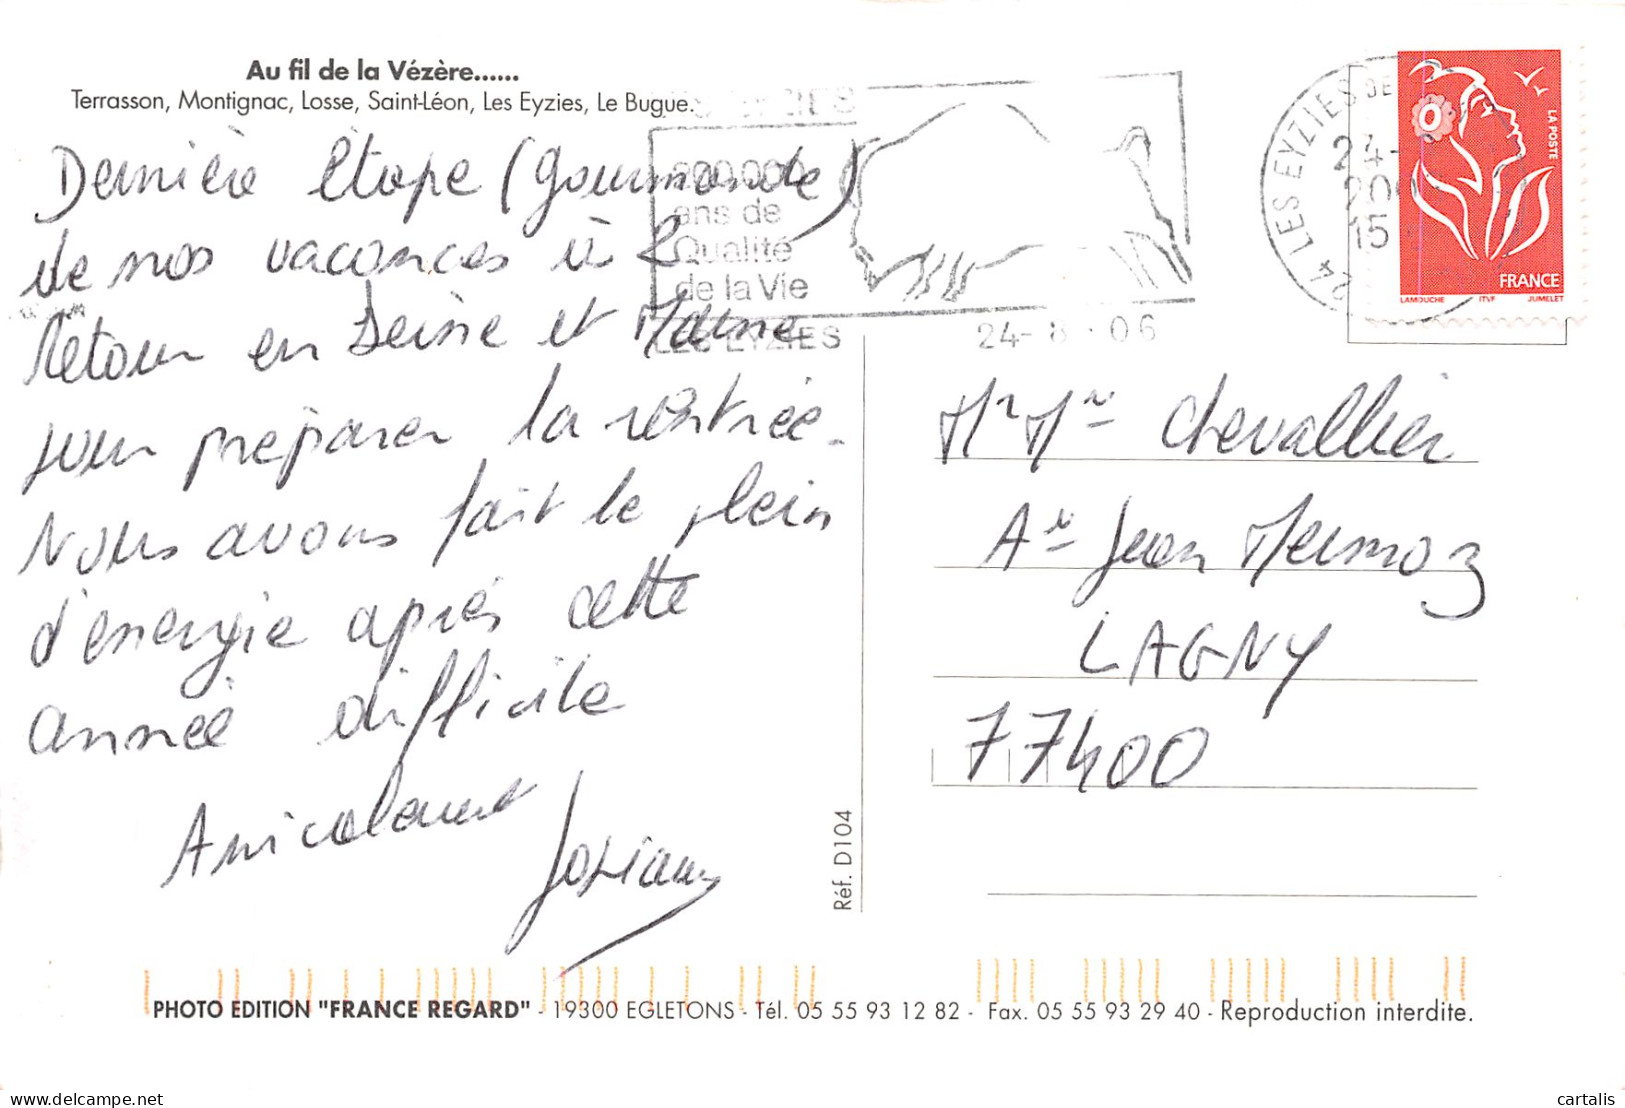 Au fil de la Vézère......
Terrasson, Montignac, Losse, Saint-Léon, Les Eyzies, Le Bugue.
Dernière étape (gourmande)
de nos vacances à
Retour en Seine et Marne
pour préparer la rentrée.
Nous avons fait le plein
d'énergie après cette
année difficile
Amicalement
Josiane
LES EYZIES
500.000
ans de
Qualité
de la Vie
LES EYZIES
24-8-06
24 LES EYZIES DE
24-
20
15
LA POSTE
FRANCE
LAMOUCHE ITVF JUMELET
Mr Me Chevallier
Ae Jean Mermoz
LAGNY
77400
Réf. D104
PHOTO EDITION "FRANCE REGARD" - 19300 EGLETONS - Tél. 05 55 93 12 82 - Fax. 05 55 93 29 40 - Reproduction interdite.
cartalis